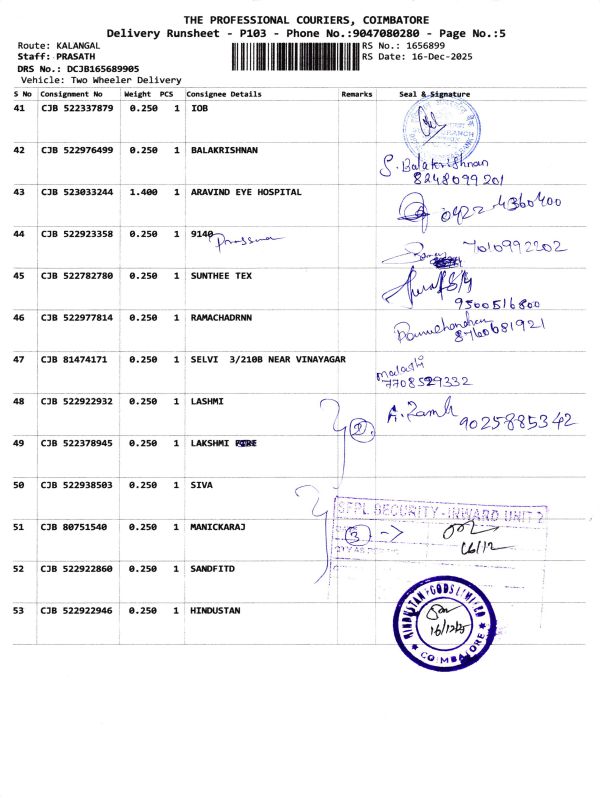 THE PROFESSIONAL COURIERS, COIMBATORE
Delivery Runsheet - P103 - Phone No.:9047080280 - Page No.:5
Route: KALANGAL RS No.: 1656899
Staff: PRASATH RS Date: 16-Dec-2025
DRS No.: DCJB165689905
Vehicle: Two Wheeler Delivery
S No Consignment No Weight PCS Consignee Details Remarks Seal & Signature
41 CJB 522337879 0.250 1 IOB
42 CJB 522976499 0.250 1 BALAKRISHNAN S. Balakrishnan
8248099201
43 CJB 523033244 1.400 1 ARAVIND EYE HOSPITAL 0422-4360400
44 CJB 522923358 0.250 1 9140 7010992202
45 CJB 522782780 0.250 1 SUNTHEE TEX
9500516800
46 CJB 522977814 0.250 1 RAMACHADRNN Ramachandran
8760681921
47 CJB 81474171 0.250 1 SELVI 3/210B NEAR VINAYAGAR
malathi
7708529332
48 CJB 522922932 0.250 1 LASHMI 9025885342
2
49 CJB 522378945 0.250 1 LAKSHMI FIRE
50 CJB 522938503 0.250 1 SIVA
SFPL SECURITY - INWARD UNIT 2
51 CJB 80751540 0.250 1 MANICKARAJ 3 ->
16/12
52 CJB 522922860 0.250 1 SANDFITD
53 CJB 522922946 0.250 1 HINDUSTAN
HINDUSTAN FOODS LIMITED
16/12/25
COIMBATORE